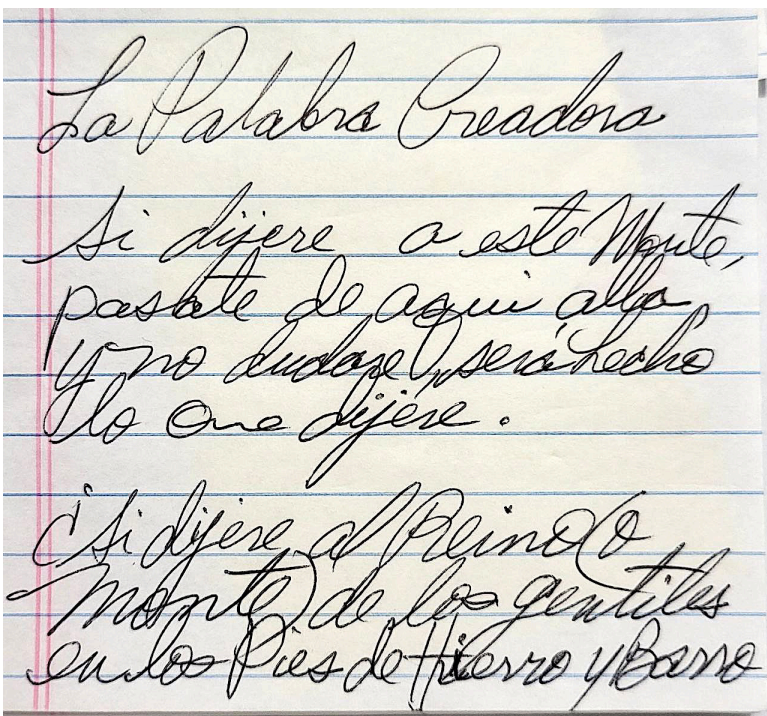 La Palabra Creadora
Si dijere a este Monte,
pasate de aqui alla
y no dudare, será hecho
lo que dijere.
¡Si dijere al Reino (o
monte) de los gentiles
en los Pies de Hierro y Barro